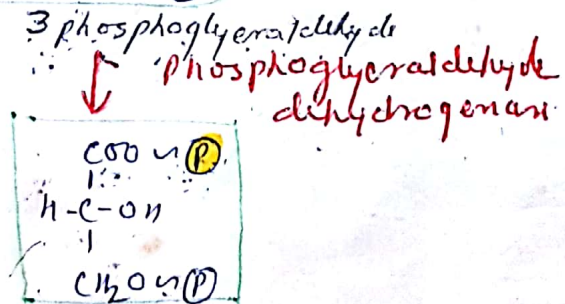 3 phosphoglyceraldehyde
Phosphoglyceraldehyde
dihydrogenase
COO ~ P
H-C-OH
CH2O ~ P